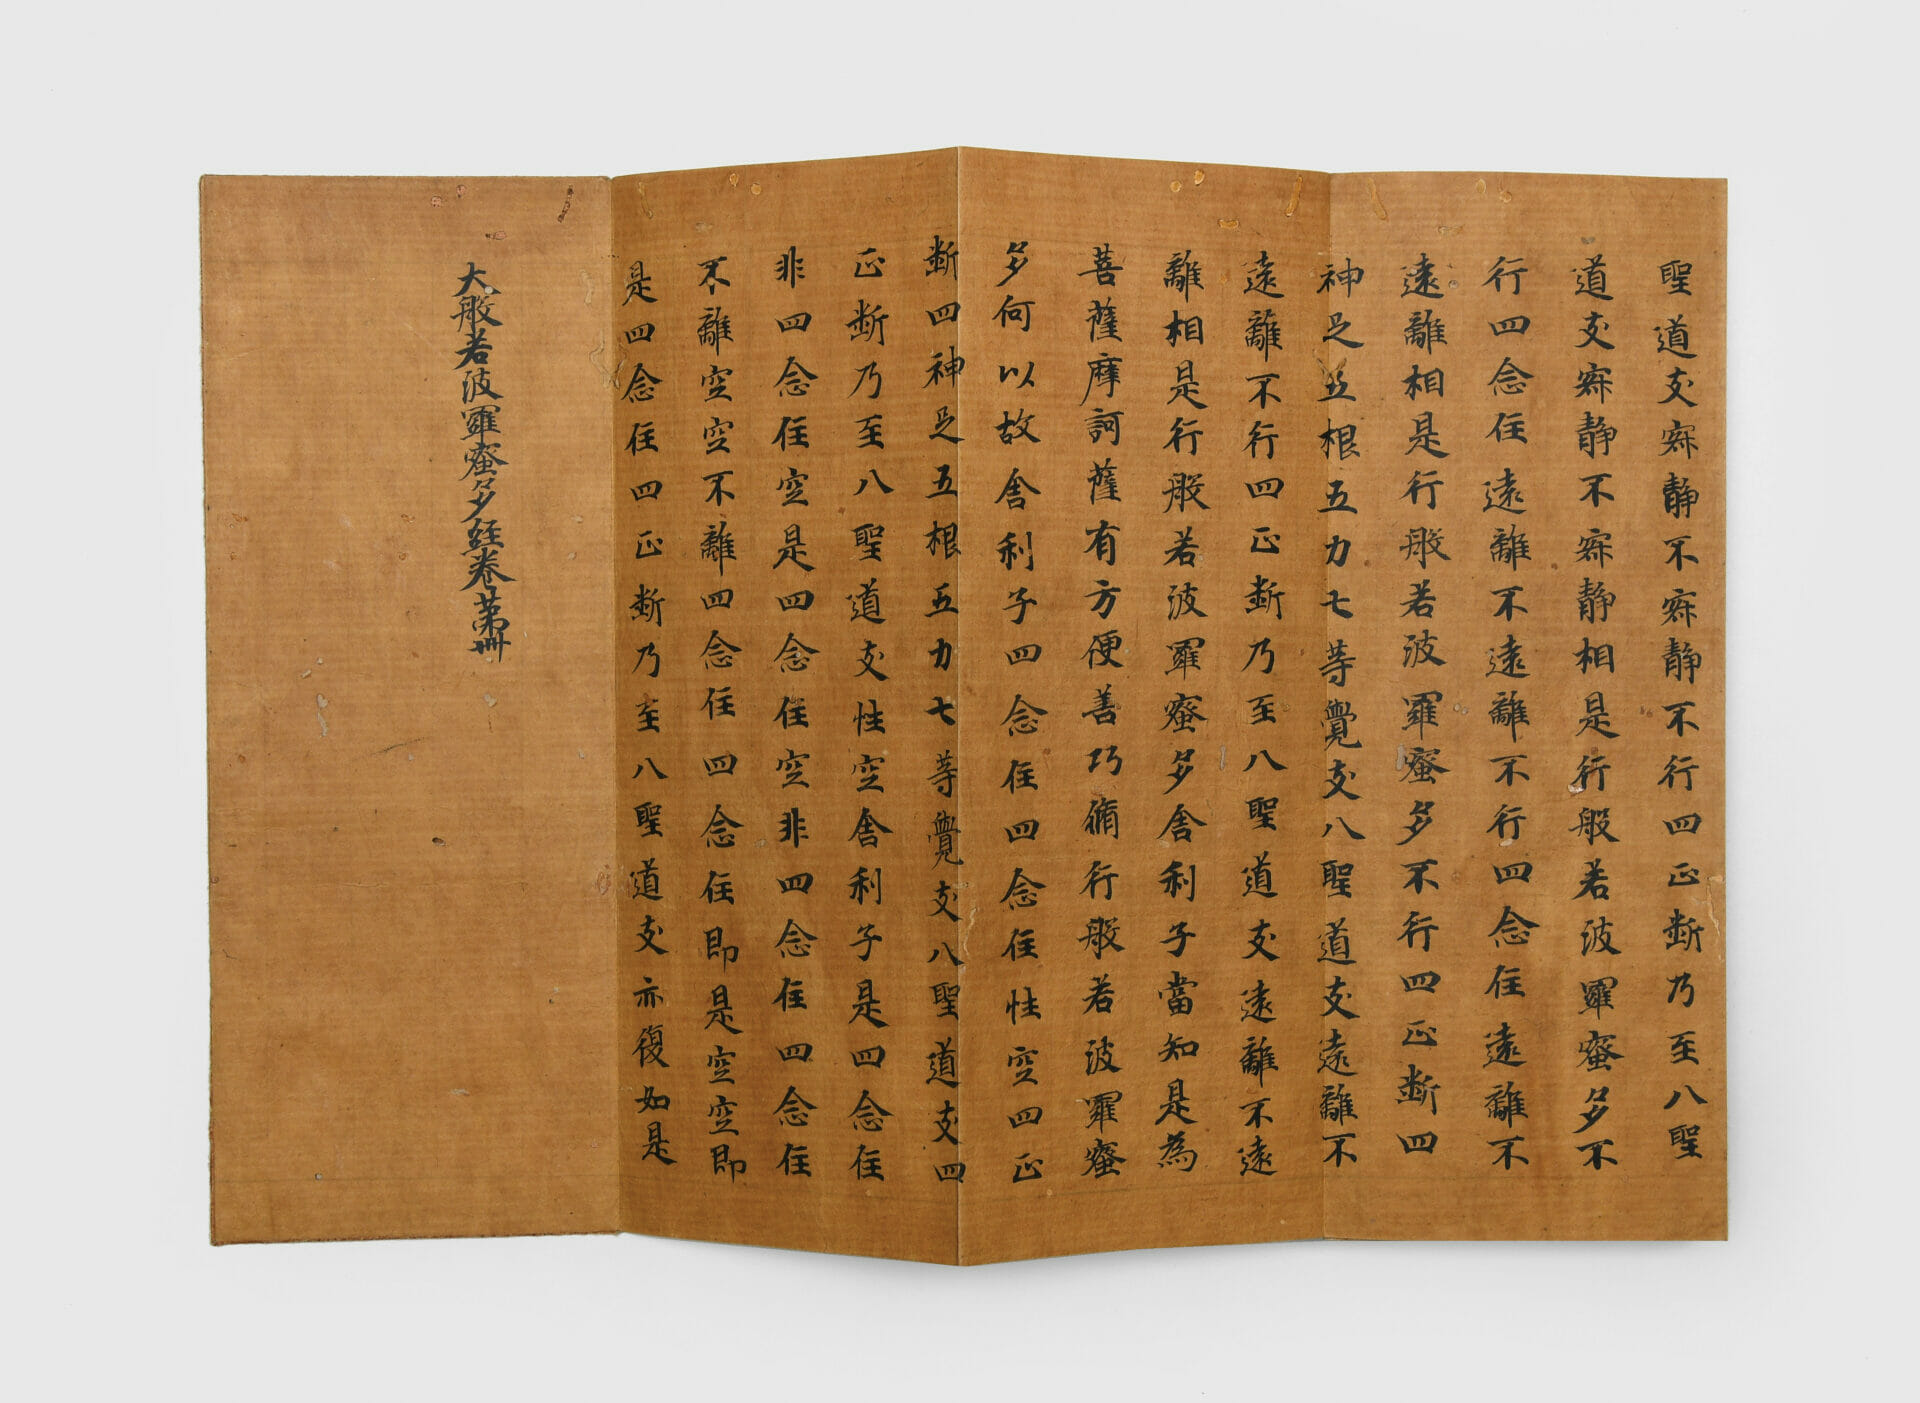 聖道支寂静不寂静不行四正断乃至八聖
道支寂静不寂静相是行般若波羅蜜多不
行四念住遠離不遠離不行四念住遠離不
遠離相是行般若波羅蜜多不行四正断四
神足五根五力七等覺支八聖道支遠離不
遠離不行四正断乃至八聖道支遠離不遠
離相是行般若波羅蜜多舍利子當知是為
菩薩摩訶薩有方便善巧脩行般若波羅蜜
多何以故舍利子四念住四念住性空四正
断四神足五根五力七等覺支八聖道支四
正断乃至八聖道支性空舍利子是四念住
非四念住空是四念住空非四念住四念住
不離空空不離四念住四念住即是空空即
是四念住四正断乃至八聖道支亦復如是
大般若波羅蜜多経巻第卌